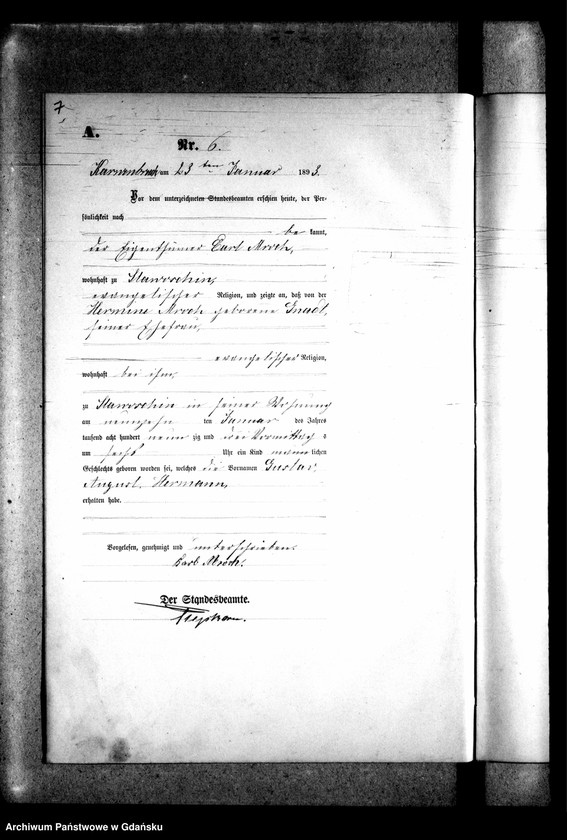 7
A.
Nr. 6.
am 23 ten Januar 1893.
Vor dem unterzeichneten Standesbeamten erschien heute, der Per-
sönlichkeit nach
be kannt,
der Eigenthümer Carl Mroch,
wohnhaft zu Slawoschin,
evangelischer Religion, und zeigte an, daß von der
Hermine Mroch geborene Gnadt,
seiner Ehefrau,
evangelischer Religion,
wohnhaft bei ihm,
zu Slawoschin in seiner Wohnung
am neunzehn ten Januar des Jahres
tausend acht hundert neun zig und drei Vormittag s
um sechs Uhr ein Kind männ lichen
Geschlechts geboren worden sei, welches die Vornamen Gustav,
August, Hermann,
erhalten habe.
Vorgelesen, genehmigt und unterschrieben.
Carl Mroch.
Der Standesbeamte.
Archiwum Państwowe w Gdańsku